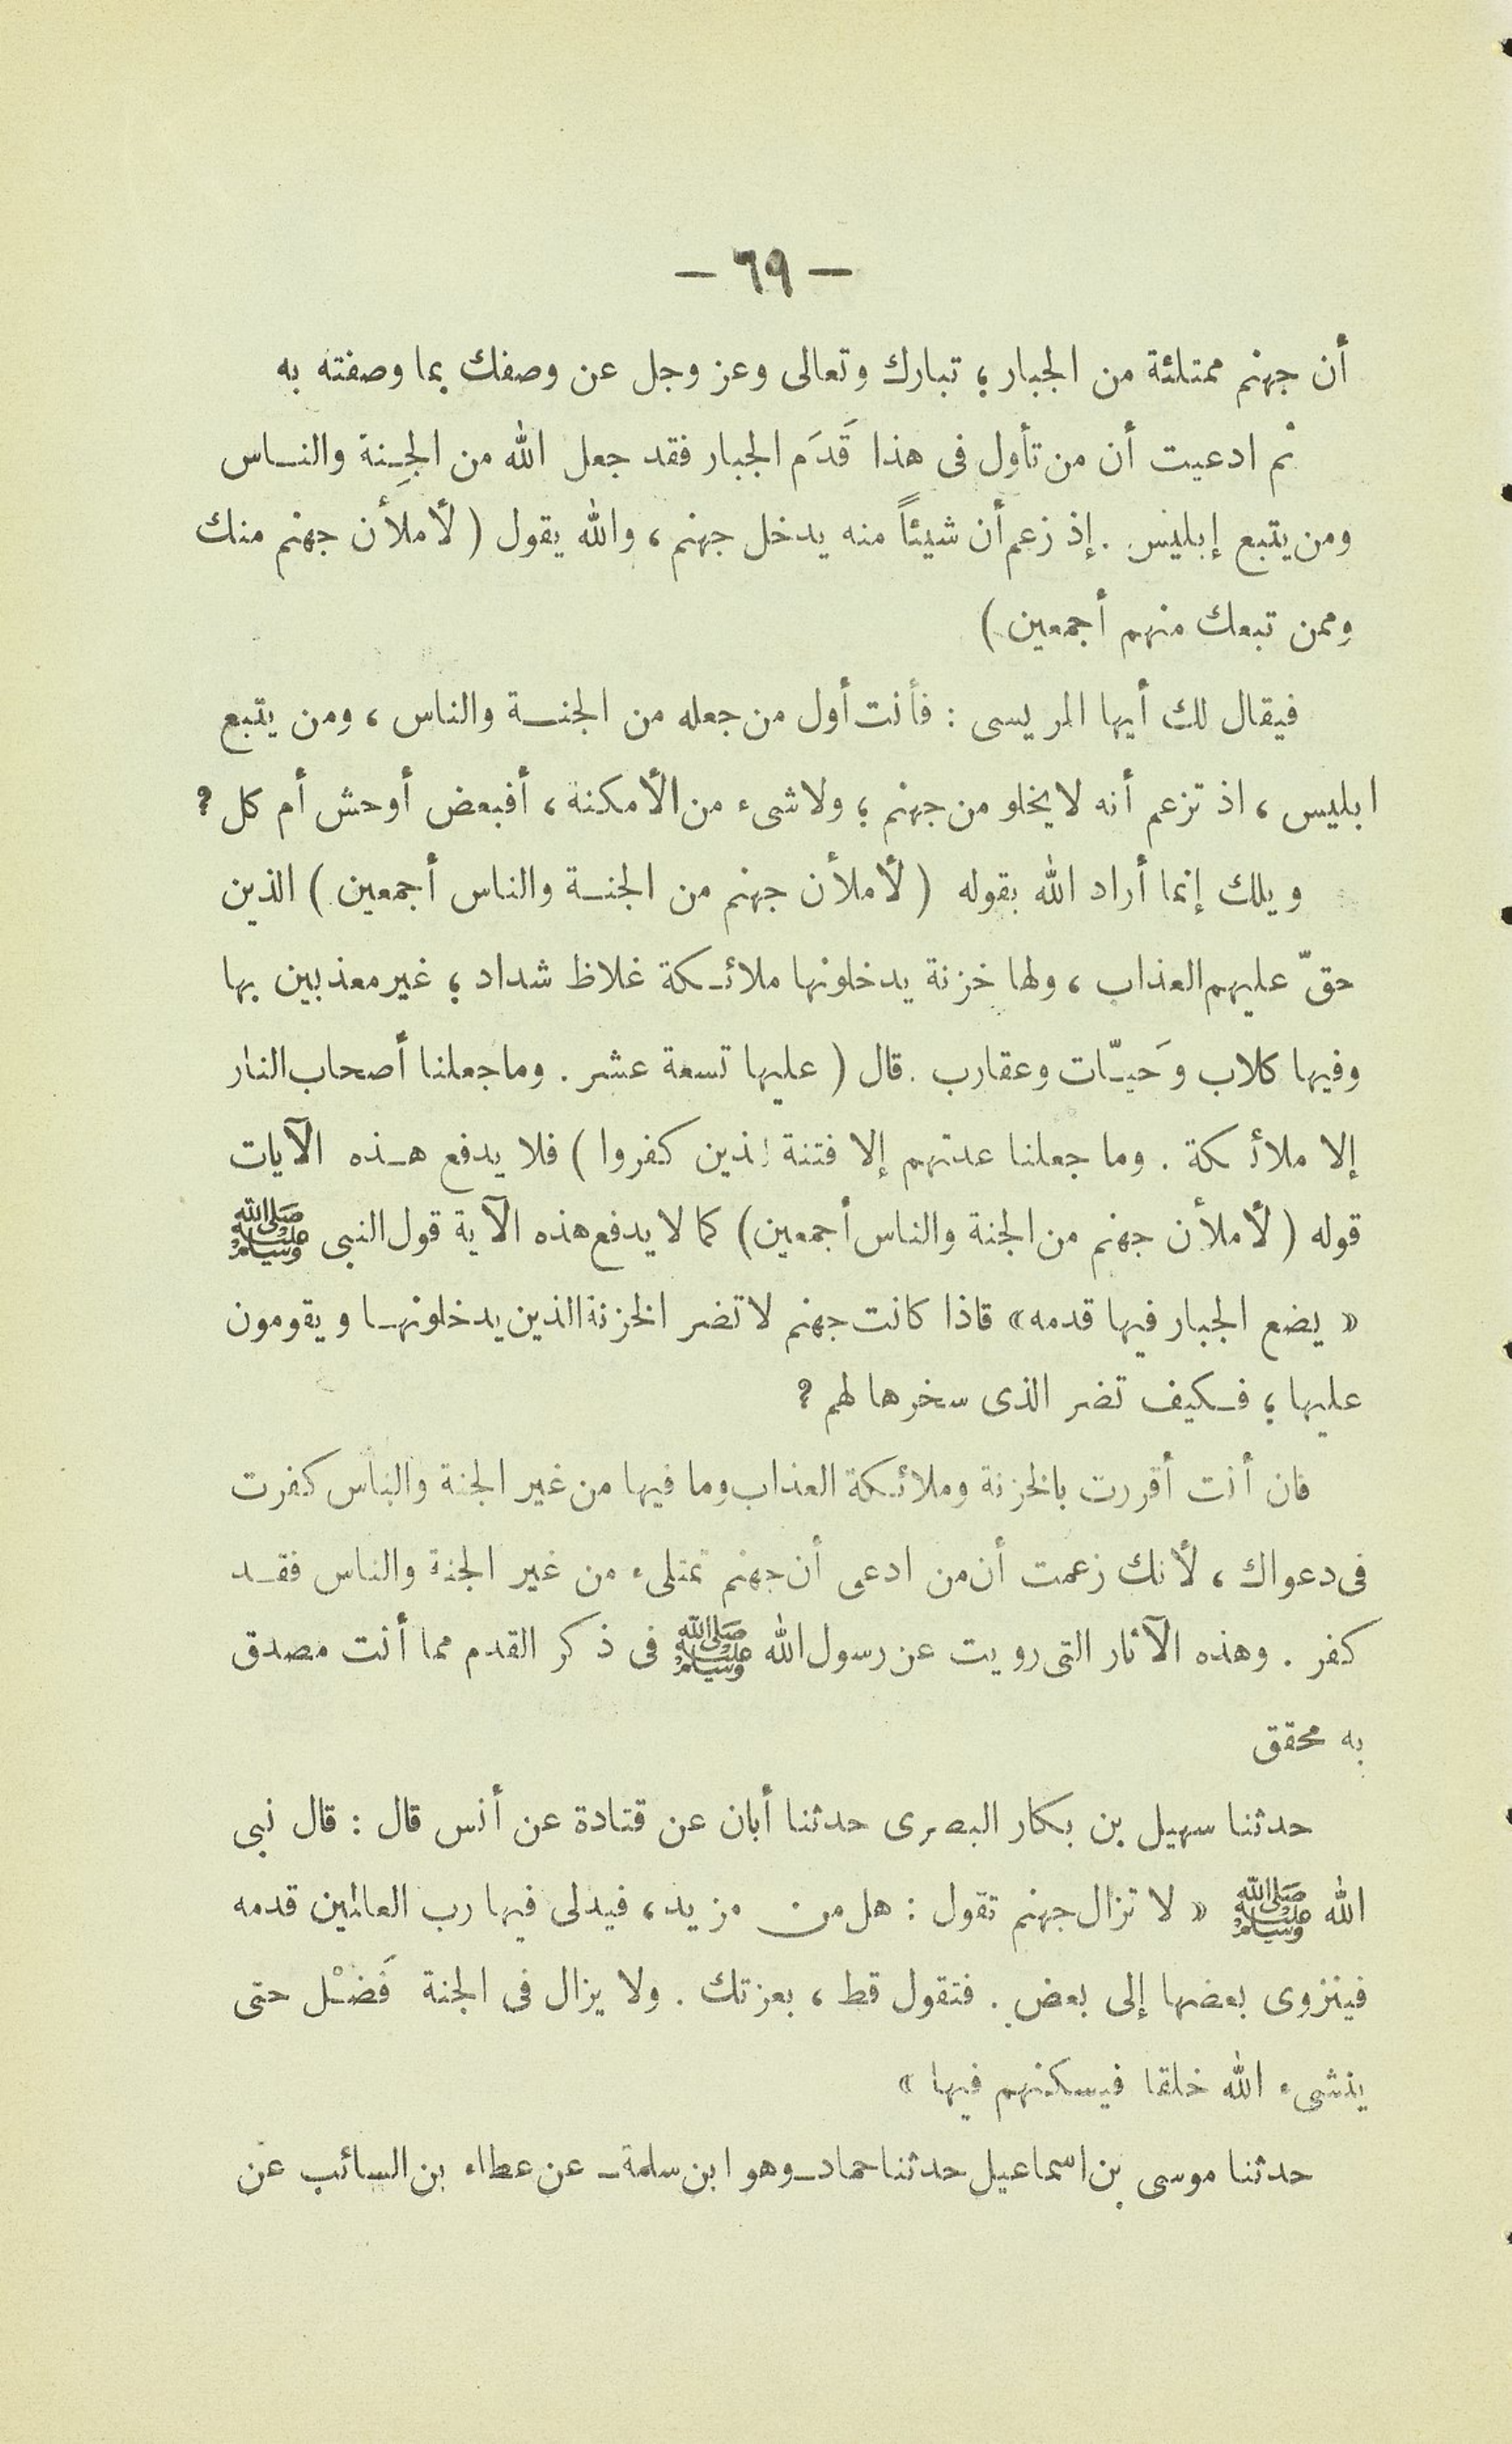 — ٦٩ —
أن جهنم ممتلئة من الجبار؛ تبارك وتعالى وعز وجل عن وصفك بما وصفته به
ثم ادعيت أن من تأول فى هذا قَدَم الجبار فقد جعل الله من الجِنة والناس
ومن يتبع إبليس. إذ زعم أن شيئاً منه يدخل جهنم، والله يقول (لأملأن جهنم منك
وممن تبعك منهم أجمعين)
فيقال لك أيها المريسى: فأنت أول من جعله من الجنة والناس، ومن يتبع
ابليس، اذ تزعم أنه لا يخلو من جهنم؛ ولا شىء من الأمكنة، أفبعض أوحش أم كل؟
ويلك إنما أراد الله بقوله (لأملأن جهنم من الجنة والناس أجمعين) الذين
حقّ عليهم العذاب، ولها خزنة يدخلونها ملائكة غلاظ شداد؛ غير معذبين بها
وفيها كلاب وَحيّات وعقارب. قال (عليها تسعة عشر. وما جعلنا أصحاب النار
إلا ملائكة. وما جعلنا عدتهم إلا فتنة للذين كفروا) فلا يدفع هذه الآيات
قوله (لأملأن جهنم من الجنة والناس أجمعين) كما لا يدفع هذه الآية قول النبى ﷺ
«يضع الجبار فيها قدمه» قاذا كانت جهنم لا تضر الخزنة الذين يدخلونها ويقومون
عليها؛ فكيف تضر الذى سخرها لهم؟
فان أنت أقررت بالخزنة وملائكة العذاب وما فيها من غير الجنة والناس كفرت
فى دعواك، لأنك زعمت أن من ادعى أن جهنم تمتلىء من غير الجنة والناس فقد
كفر. وهذه الآثار التى رويت عن رسول الله ﷺ فى ذكر القدم مما أنت مصدق
به محقق
حدثنا سهيل بن بكار البصرى حدثنا أبان عن قتادة عن أنس قال: قال نبى
الله ﷺ «لا تزال جهنم تقول: هل من مزيد، فيدلى فيها رب العالمين قدمه
فينزوى بعضها إلى بعض. فتقول قط، بعزتك. ولا يزال فى الجنة فَضْل حتى
ينشىء الله خلقا فيسكنهم فيها»
حدثنا موسى بن اسماعيل حدثنا حماد ـ وهو ابن سلمة ـ عن عطاء بن السائب عن